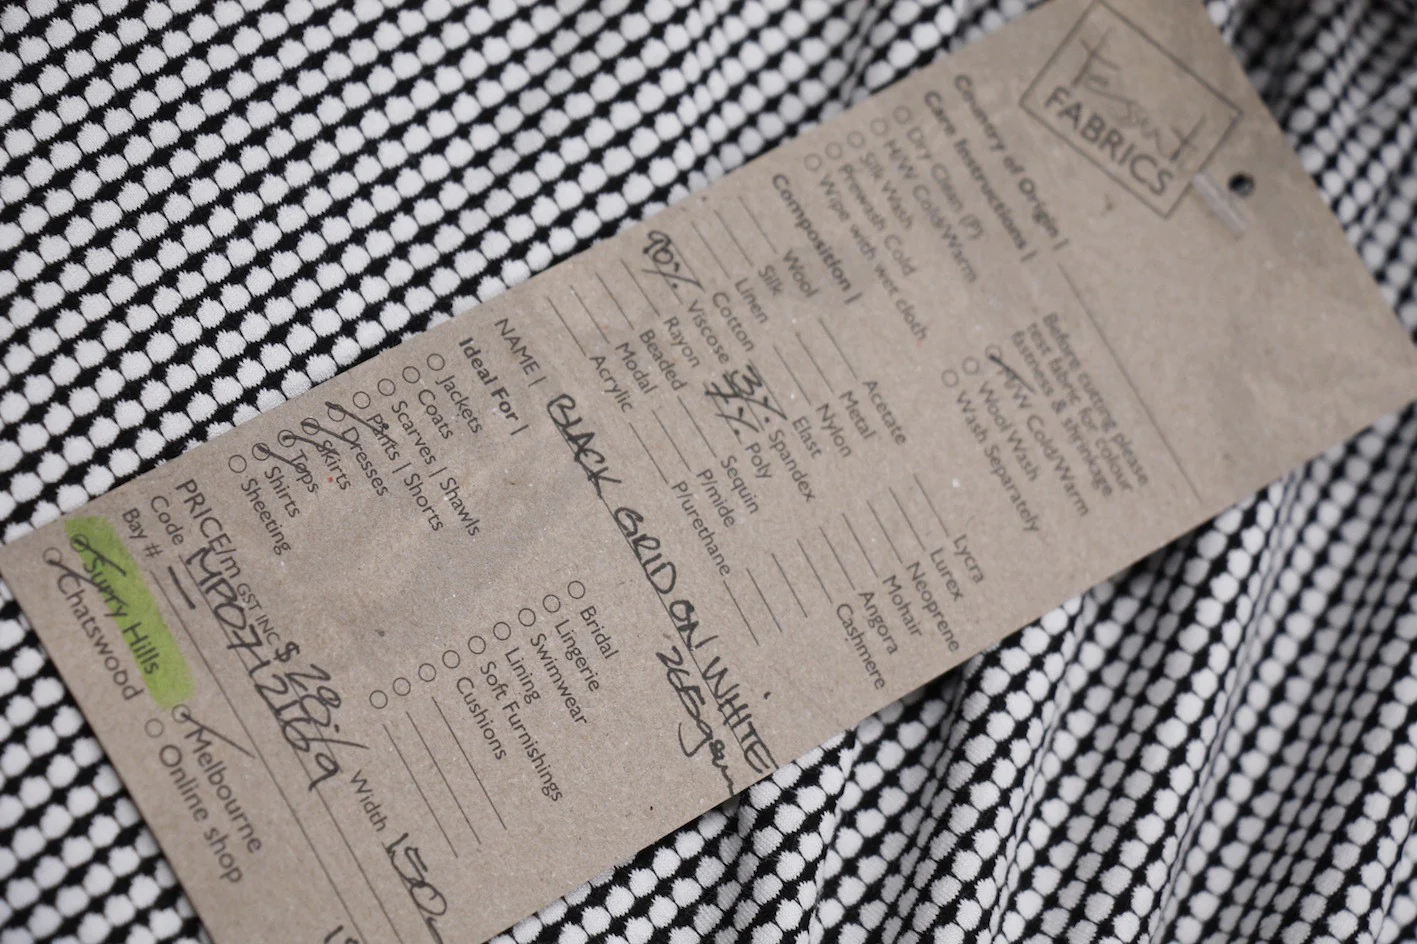 Tessuti
FABRICS
Country of Origin |
Care Instructions |
Before cutting please
test fabric for colour
fastness & shrinkage
Dry Clean (P)
H/W Cold/Warm
Silk Wash
Prewash Cold
Wipe with wet cloth
M/W Cold/Warm
Wool Wash
Wash Separately
Composition |
Wool
Silk
Linen
Cotton
90% Viscose
Rayon
Beaded
Modal
Acrylic
Acetate
Metal
Nylon
Elast
3% Spandex
7% Poly
Sequin
P/mide
P/urethane
Lycra
Lurex
Neoprene
Mohair
Angora
Cashmere
NAME | BLACK GRID ON WHITE
265gsm
Ideal For |
Jackets
Coats
Scarves | Shawls
Pants | Shorts
Dresses
Skirts
Tops
Shirts
Sheeting
Bridal
Lingerie
Swimwear
Lining
Soft Furnishings
Cushions
PRICE/m GST INC $
Width 150
Code
Bay # —
Surry Hills
Melbourne
Chatswood
Online shop